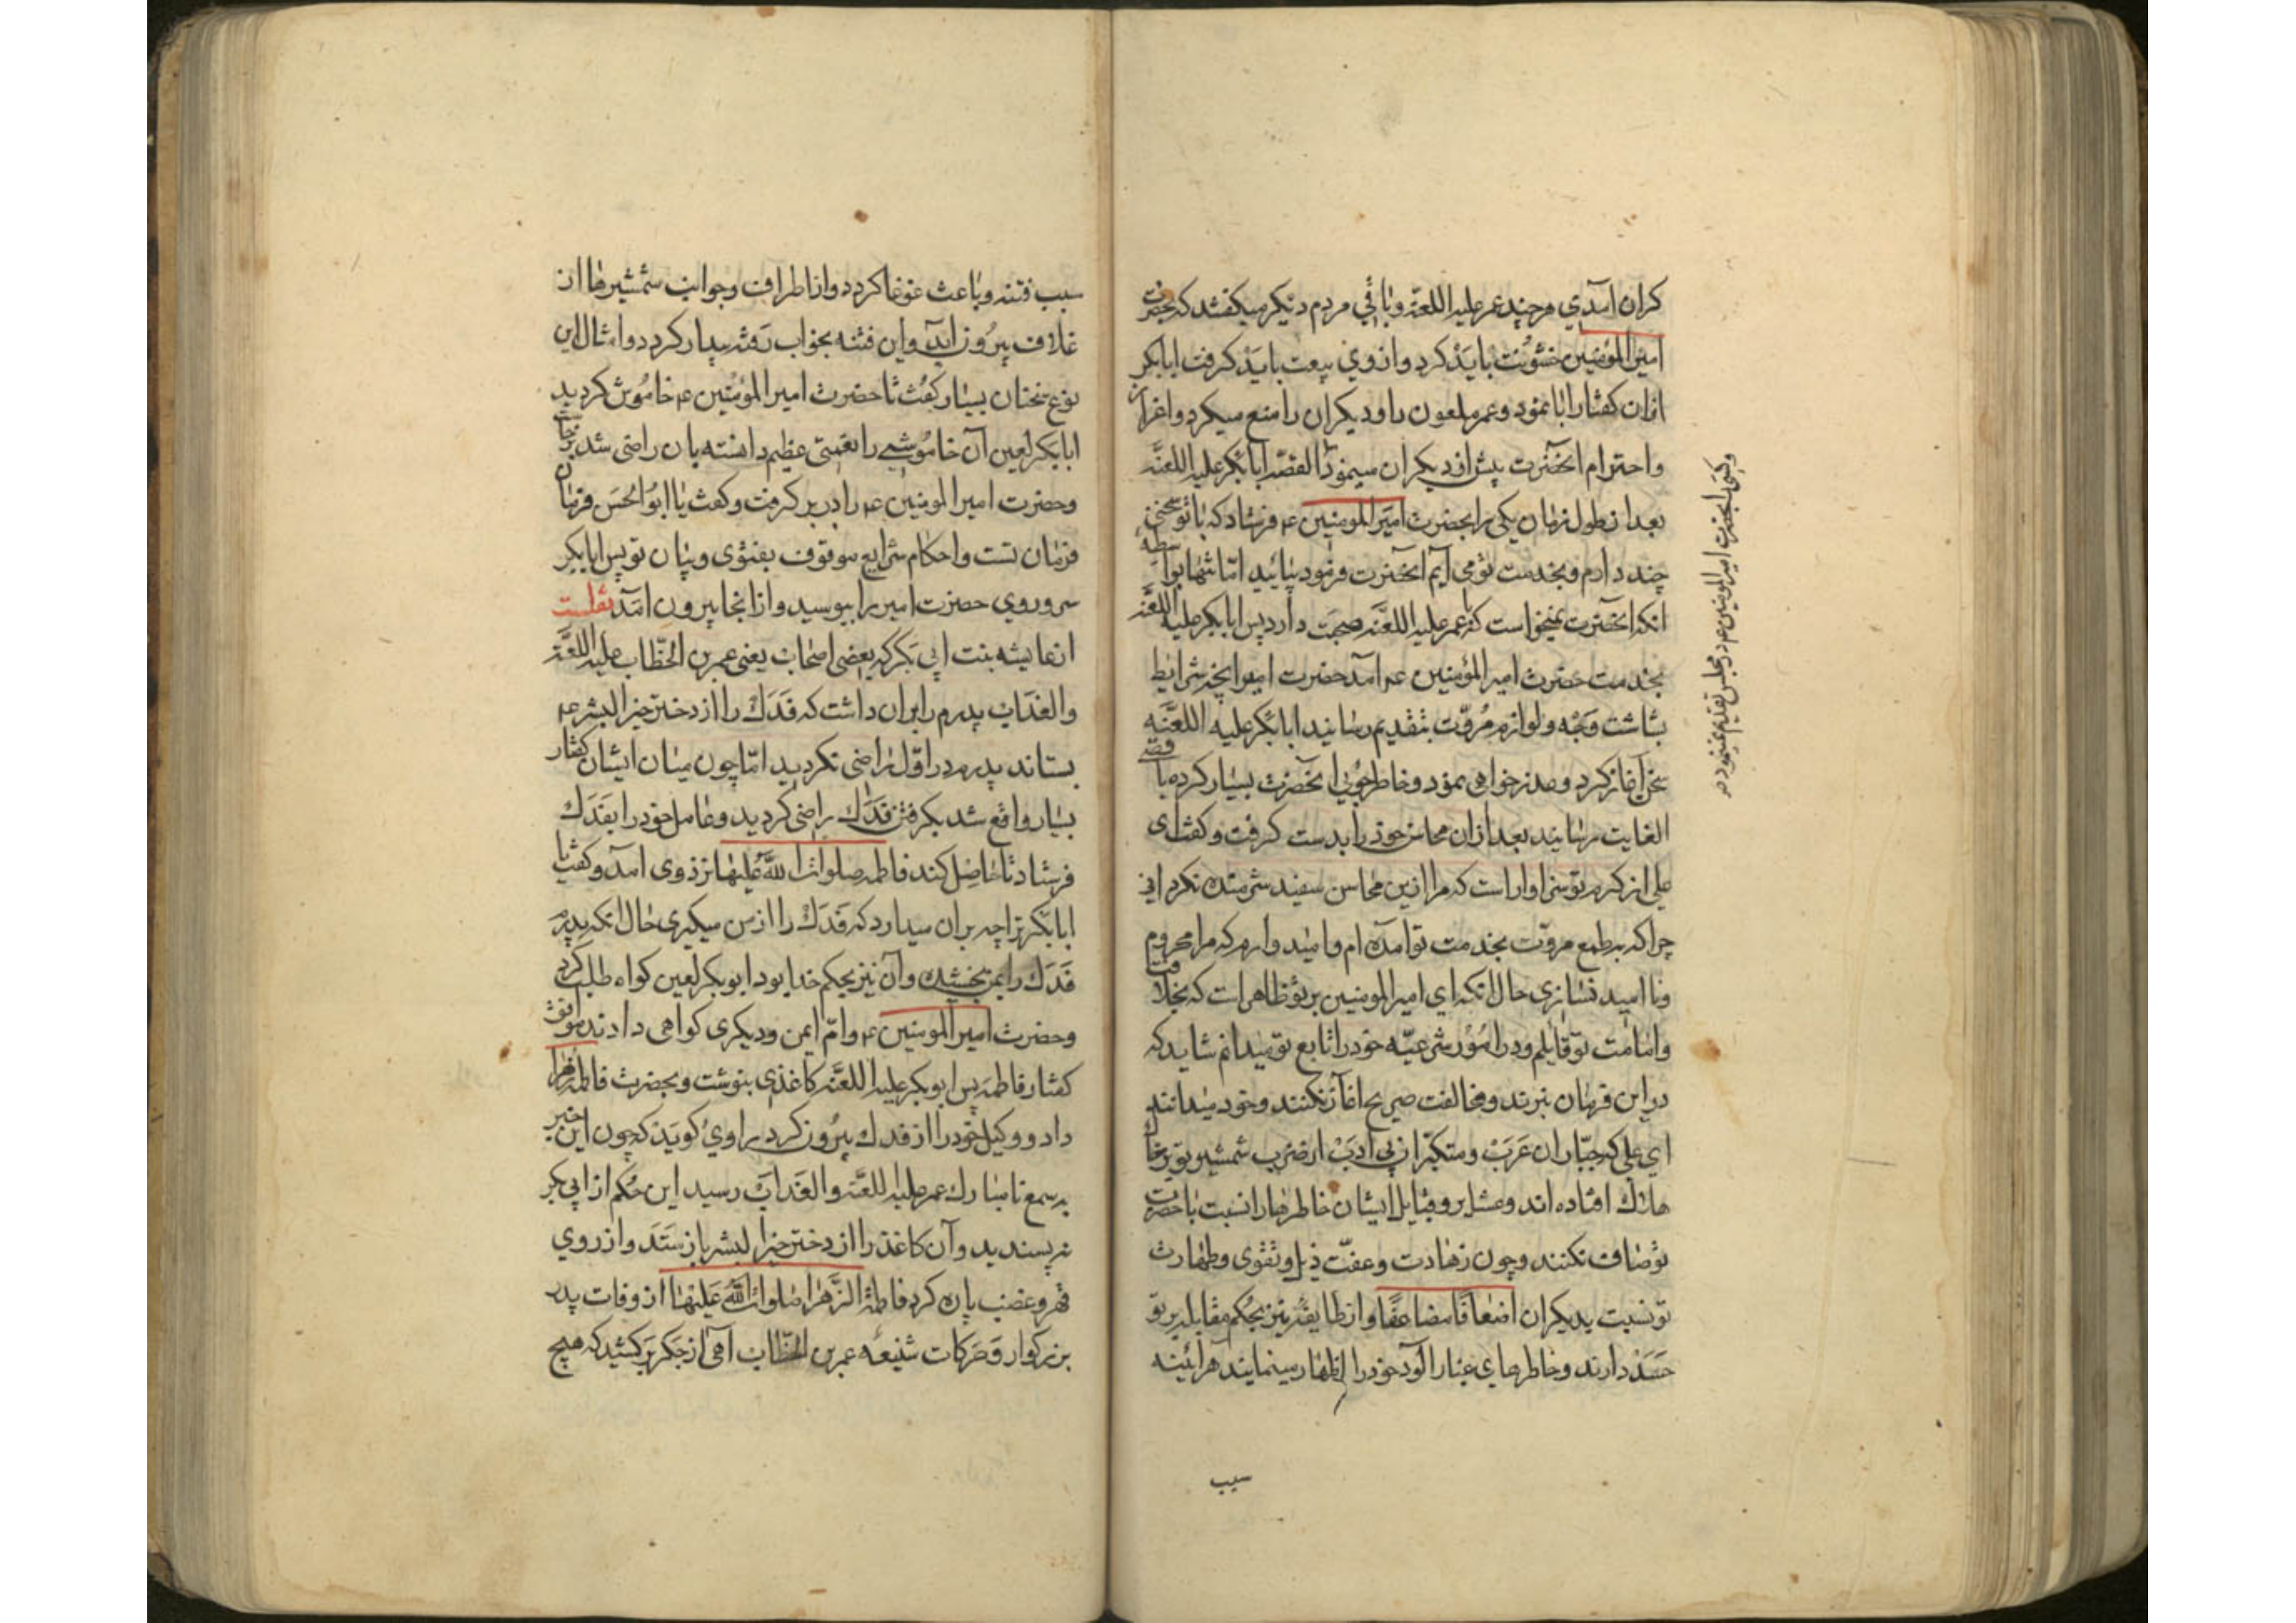 کران آمدی هرچند عمر علیه اللعنه و باقی مردم دیکر میکفتند که بحضرت
امیر المؤمنین خشونت باید کرد و از وی بیعت باید کرفت ابابکر
ازان کفتار ابا نمود و عمر ملعون را و دیکران را منع میکرد و اعزاز
و احترام آنحضرت پیش از دیکران مینمود القصه ابابکر علیه اللعنه
بعد از طول زمان یکی را بحضرت امیر المومنین ع فرستاد که با تو سخنی
چند دارم و بخدمت تو می آیم آنحضرت فرمود بیائید اما تنها بواسطه
انکه آنحضرت نمیخواست که با عمر علیه اللعنه صحبت دارد پس ابابکر علیه اللعنه
بخدمت حضرت امیر المؤمنین ع آمد حضرت امیر انچه شرایط
بشاشت وجه و لوازم مروت بتقدیم رسانید ابابکر علیه اللعنه
سخن آغاز کرد و عذر خواهی نمود و خاطر جوئی آنحضرت بسیار کرده باقصی
الغایت رسانید بعد ازان محاسن خود را بدست کرفت و کفت ای
علی از کرم تو سزاوار است که مرا ازین محاسن سفید شرمنده نکردانی
چراکه بطمع مروت بخدمت تو آمده ام و امید وارم که مرا محروم
و نا امید نسازی حال انکه ای امیر المومنین بر تو ظاهر است که بخلافت
و امامت تو قایلم و در امور شرعیه خود را تابع تو میدانم شاید که
در این فرمان نبرند و مخالفت صریح آغاز نکنند و خود میدانند
ای علی که جباران عرب و متکبران بی ادب از ضرب شمشیر تو بر خاک
هلاک افتاده اند و عشایر و قبایل ایشان خاطرها را نسبت با حضرت
تو صاف نکنند و چون زهادت و عفت ذیل و تقوی و طهارت
تو نسبت بدیکران اضعافا مضاعفا و از طایفه نیز بحکم مقابله بر تو
حسد دارند و خاطرهای غبار آلود خود را اظهار مینمایند هرآئینه
سبب
و کسی آنحضرت امیر المومنین ع در مجلس تقدیم نمینمود
سبب فتنه و باعث غوغا کردد و از اطراف و جوانب شمشیرها از
غلاف بیرون آید و این فتنه بخواب رفته بیدار کردد و امثال این
نوع سخنان بسیار کفت تا حضرت امیر المؤمنین ع خاموش کردید
ابابکر لعین آن خاموشی را نعمتی عظیم دانسته بان راضی شد برخاست
و حضرت امیر المومنین ع را در بر کرفت و کفت یا ابو الحسن فرمان
فرمان تست و احکام شرایع موقوف بفتوی و بیان تو پس ابابکر
سر و روی حضرت امیر را ببوسید و از انجا بیرون آمد نقلست
از عایشه بنت ابی بکر که بعضی اصحاب یعنی عمر بن الخطاب علیه اللعنه
و العذاب پدرم را بران داشت که فدک را از دختر خیر البشر ع
بستاند پدرم در اول راضی نکردید اما چون میان ایشان کفتار
بسیار واقع شد بکرفتن فدک راضی کردید و عامل خود را بفدک
فرستاد تا حاصل کند فاطمه صلوات الله علیها نزد وی آمد و کفت یا
ابابکر ترا چه بران میدارد که فدک را از من میکیری حال انکه پدرم
فدک را بمن بخشید و آن نیز بحکم خدا بود ابوبکر لعین کواه طلب کرد
و حضرت امیر المومنین ع و ام ایمن و دیکری کواهی دادند موافق
کفتار فاطمه پس ابوبکر علیه اللعنه کاغذی بنوشت و بحضرت فاطمه زهرا
داد و وکیل خود را از فدک بیرون کرد راوی کوید که چون این خبر
بسمع نا مبارک عمر علیه اللعنه و العذاب رسید این حکم از ابی بکر
نپسندید و آن کاغذ را از دختر خیر البشر باز ستد و از روی
قهر و غضب پاره کرد فاطمة الزهرا صلوات الله علیها از وفات پدر
بزرکوار و حرکات شنیعه عمر بن الخطاب آهی از جکر برکشید که هیچ